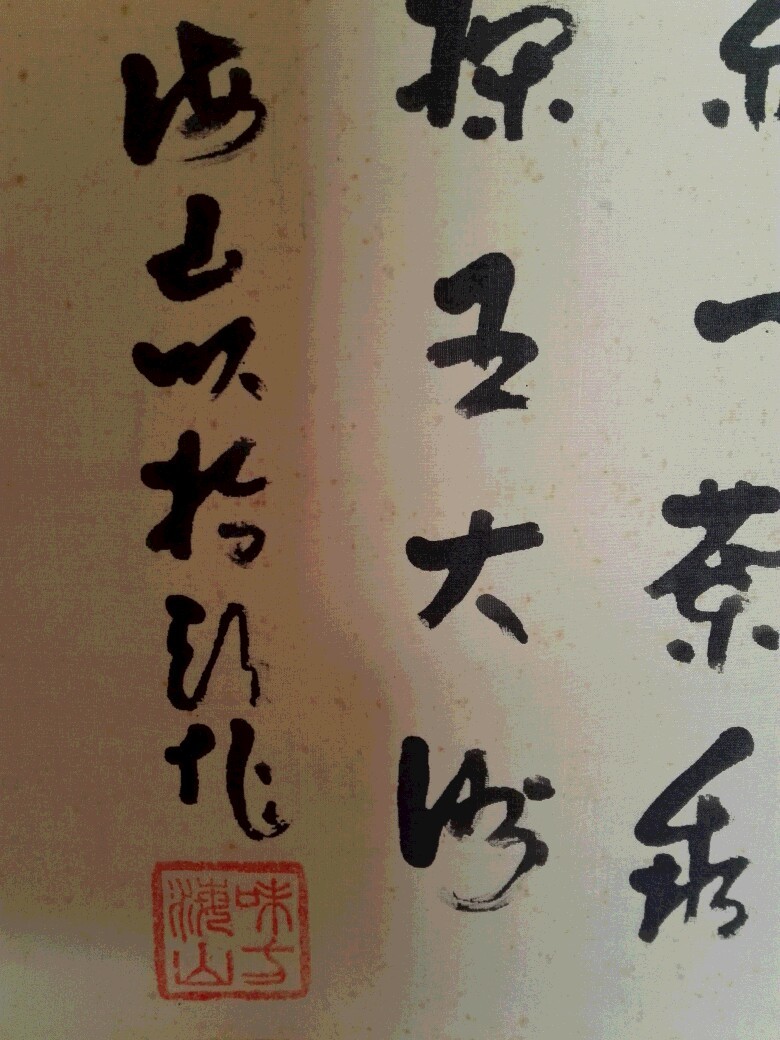 一茶
探王大
海山以指頭作
味方
海山